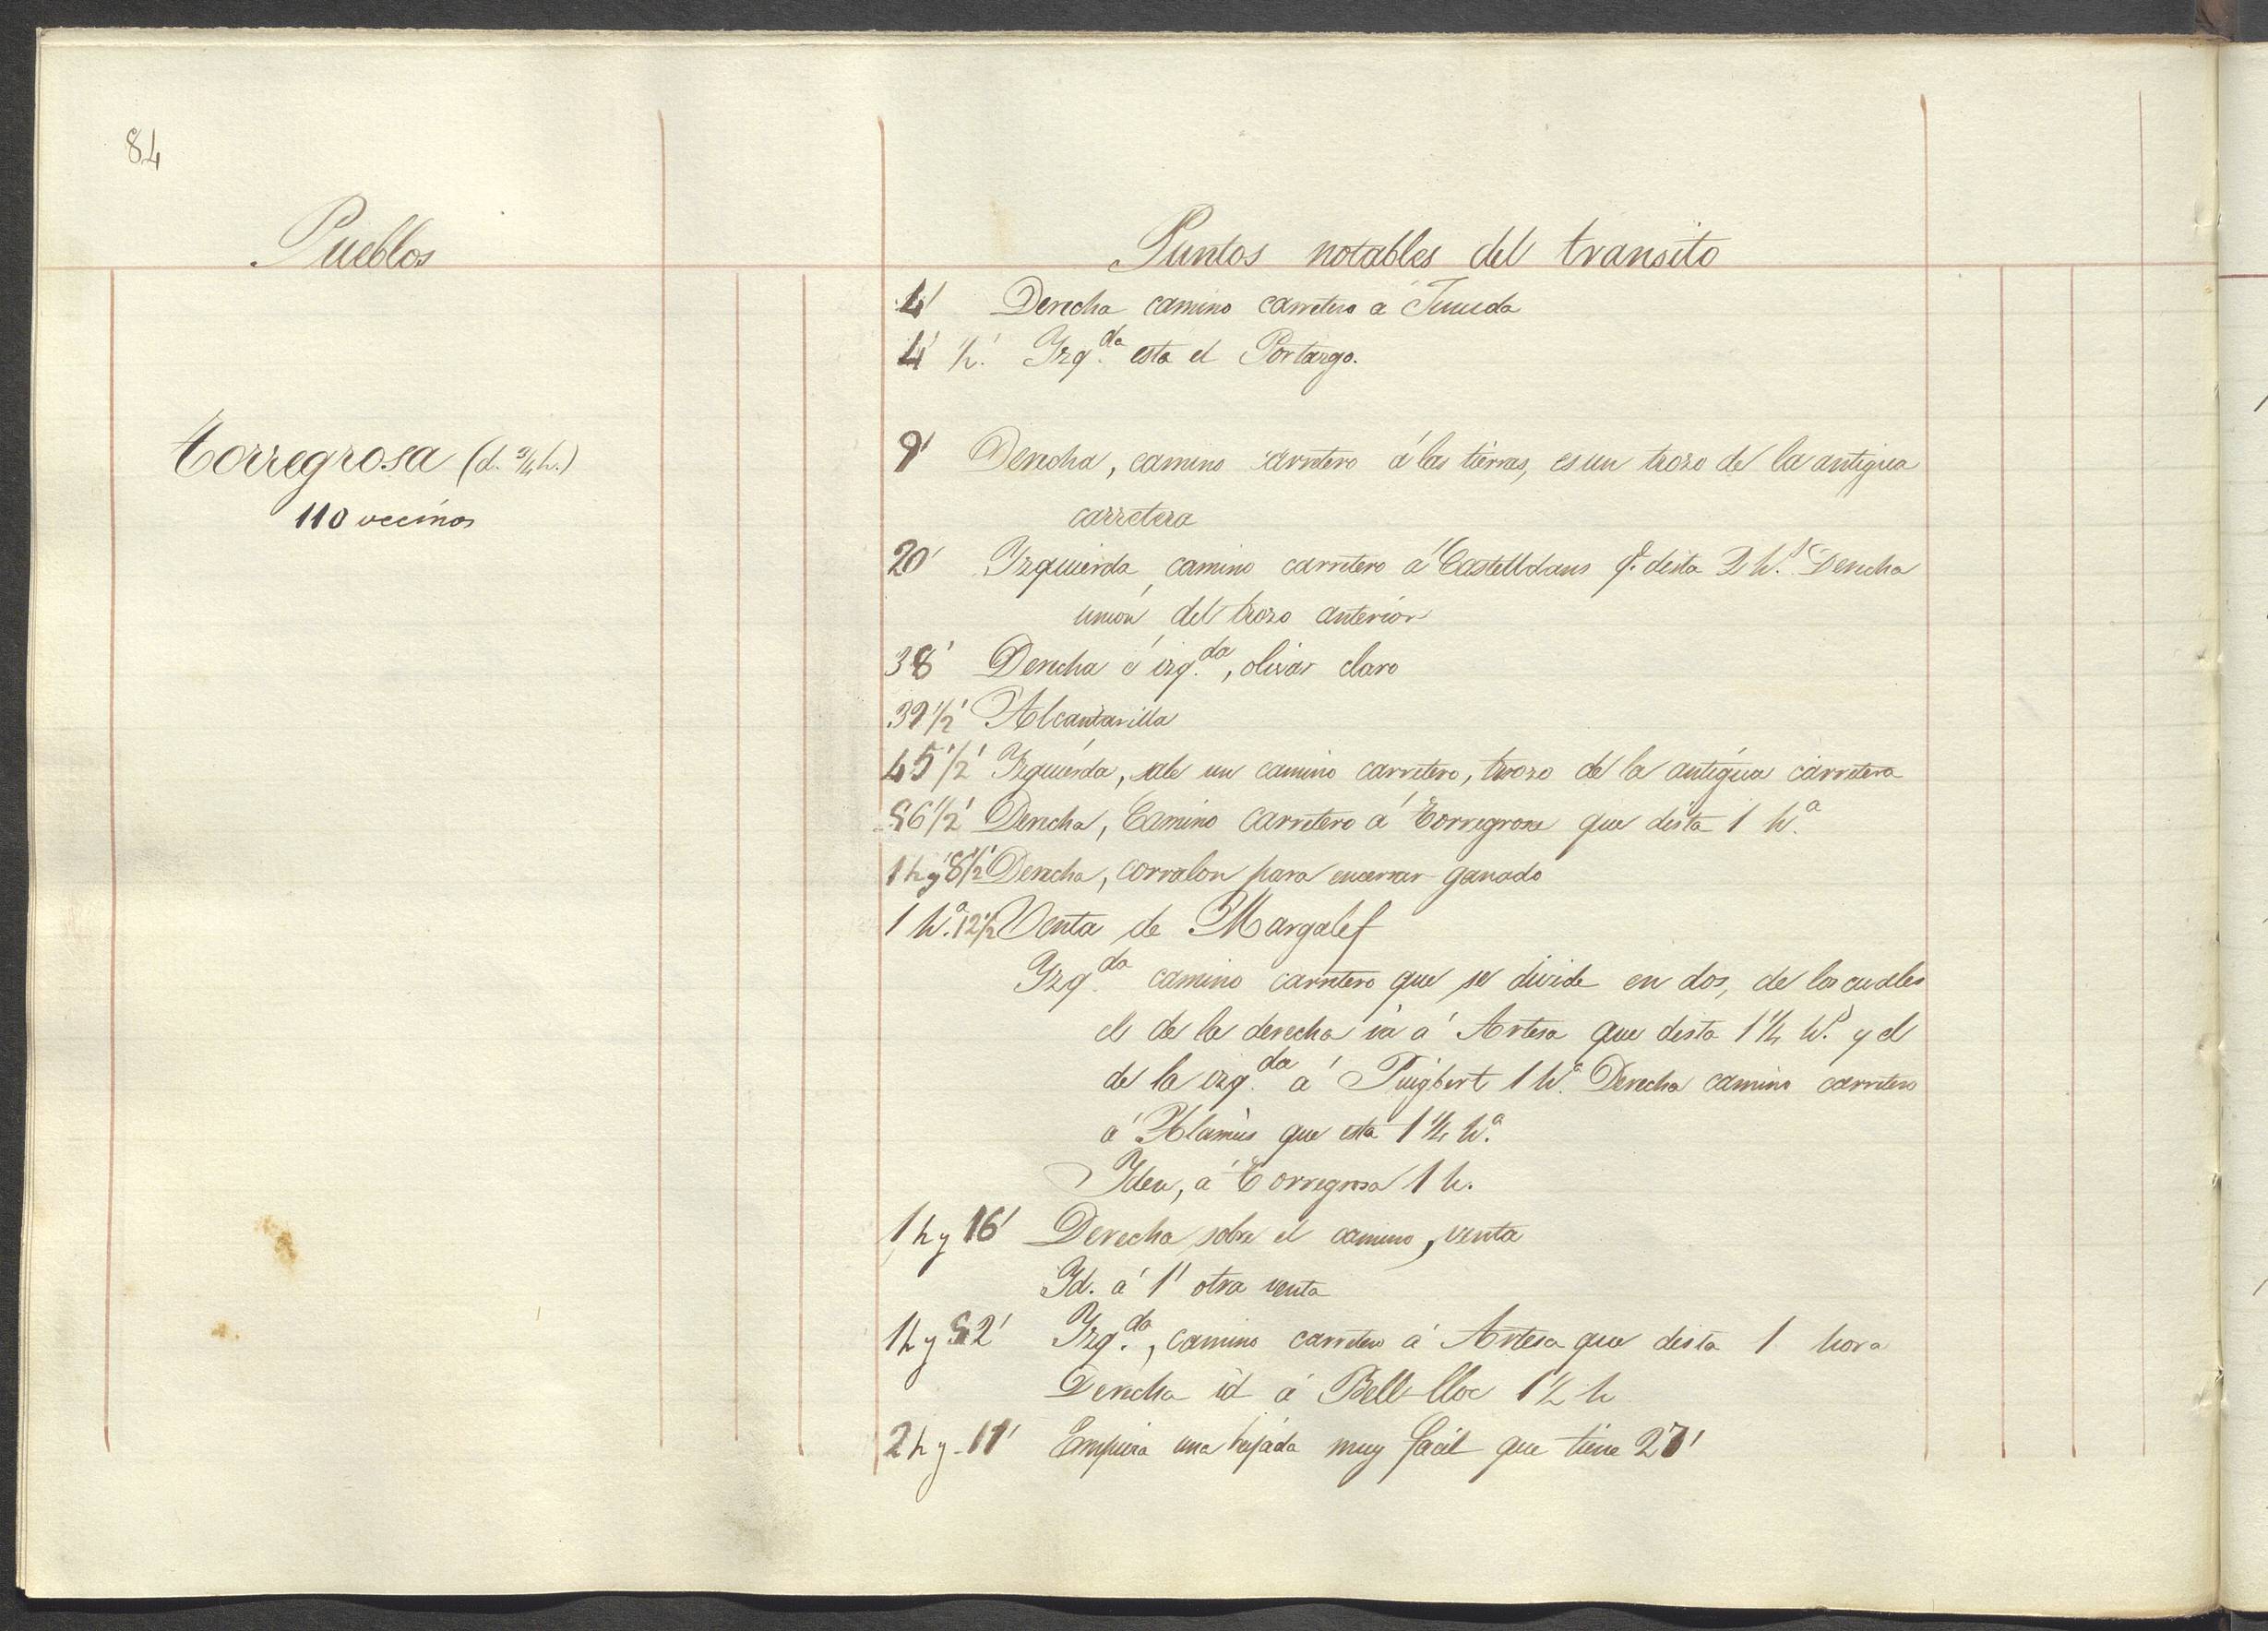 84
Pueblos
Puntos notables del transito
4' Derecha camino carretero á Juneda
4' ½' Yzq.da esta el Portazgo.
Torregrosa (d. ¾ h.)
110 vecinos
9' Derecha, camino carretero á las tierras, es un trozo de la antigua
carretera
20' Yzquierda camino carretero á Castelldans q.e dista 2 h.s Derecha
union del trozo anterior
38' Derecha é izq.da, olivar claro
39½' Alcantarilla
45½' Yzquierda, sale un camino carretero, trozo de la antigua carretera
56½' Derecha, Camino carretero á Torregrosa que dista 1 h.a
1 h y 8½' Derecha, corralon para encerrar ganado
1 h.a 12½ Venta de Margalef
Yzq.da camino carretero que se divide en dos, de los cuales
el de la derecha va á Artesa que dista 1¼ h.s y el
de la izq.da á Puigbert 1 h.a Derecha camino carretero
á Alamús que está 1¼ h.a
Yden, á Torregrosa 1 h.
1 h y 16' Derecha sobre el camino, venta
Yd. á 1' otra venta
1 h y 52' Yzq.da, camino carretero á Artesa que dista 1 hora
Derecha id á Bell-lloc 1½ h
2 h y 11' Empieza una bajada muy facil que tiene 27'